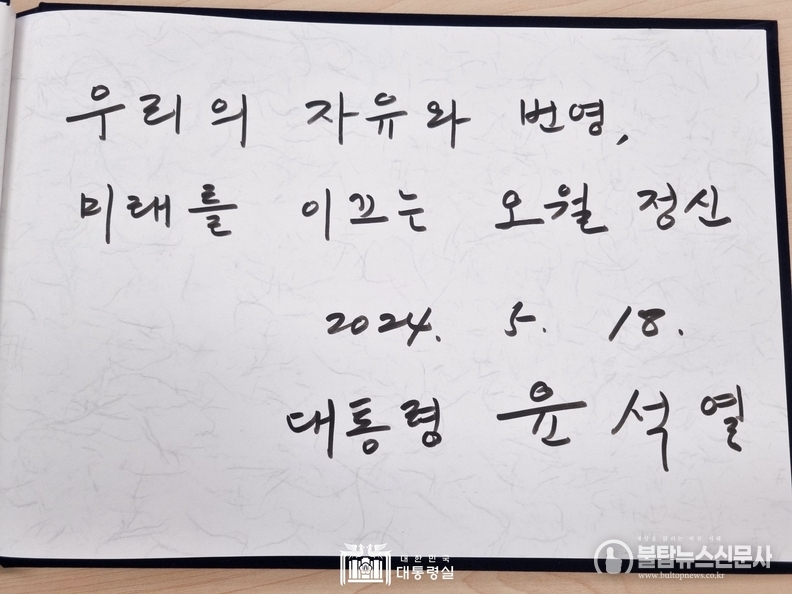 우리의 자유와 번영,
미래를 이끄는 오월 정신
2024. 5. 18.
대통령 윤석열
대한민국
대통령실
세상을 밝히는 바른 시각
불탑뉴스신문사
www.bultopnews.co.kr